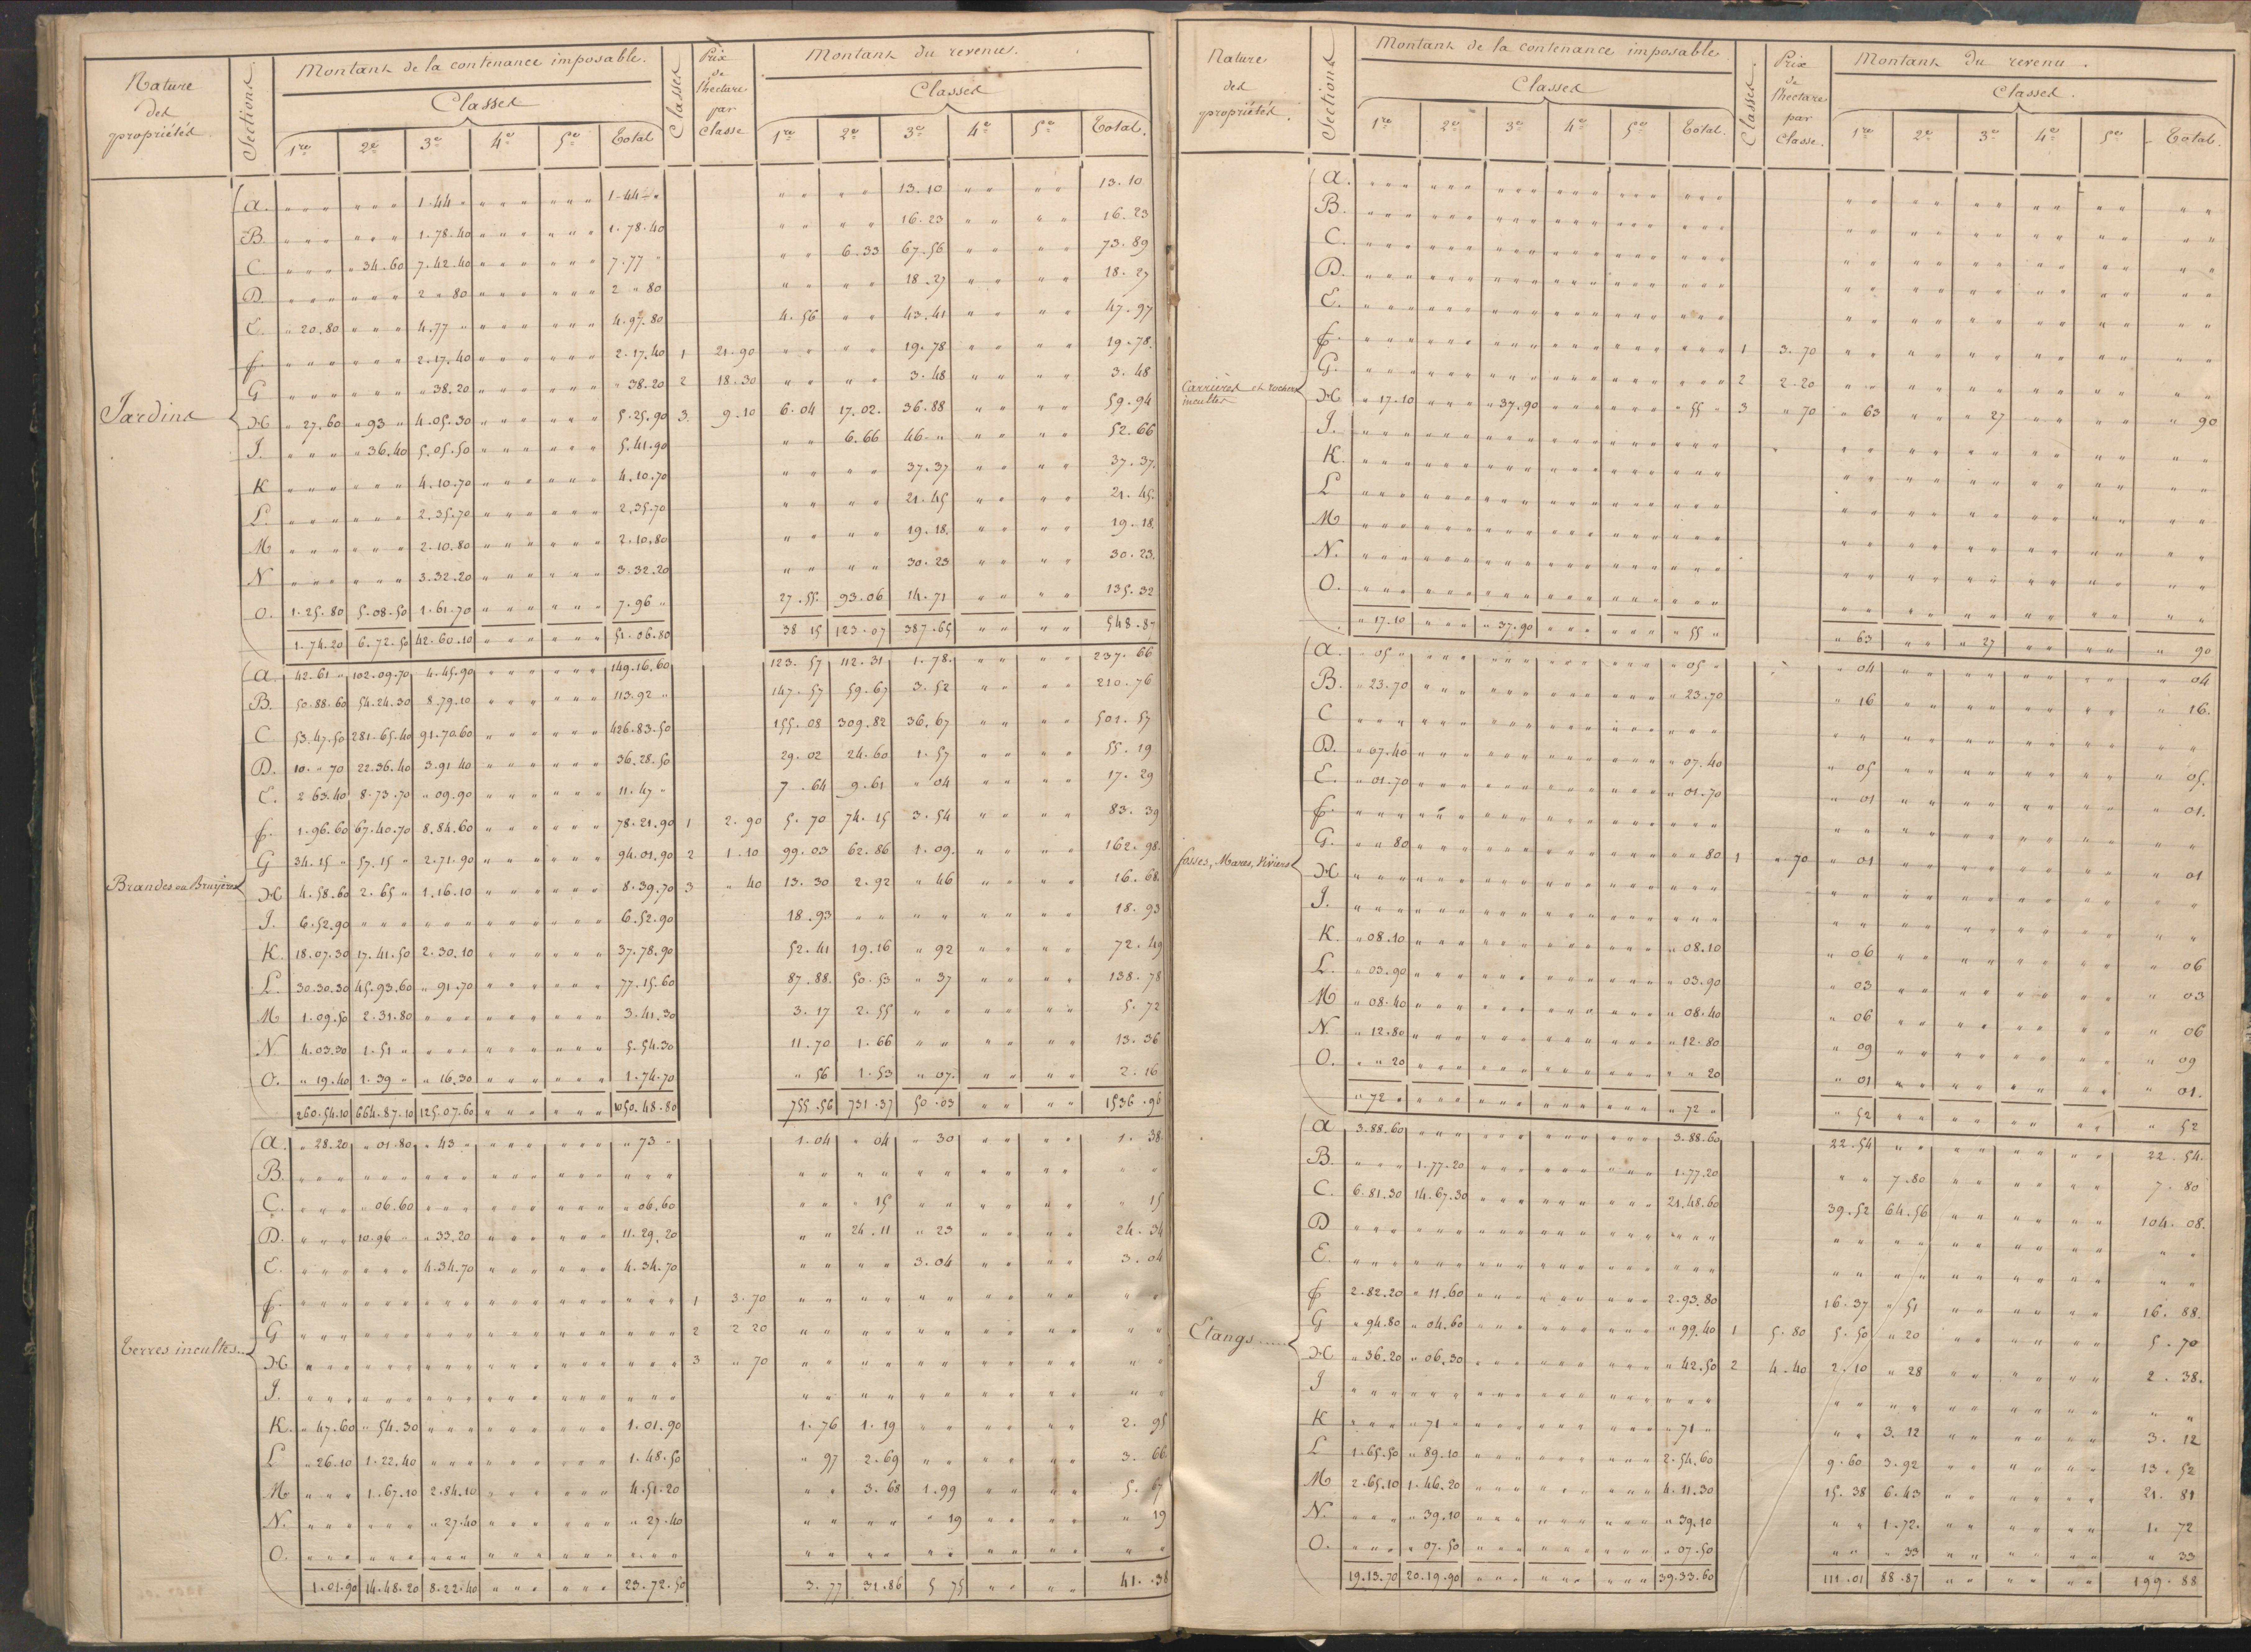 Nature des propriétés
Sections
Montant de la contenance imposable.
Classes
1re 2e 3e 4e 5e Total
Classes
Prix de l'hectare par classe
Montant du revenu.
Classes
1re 2e 3e 4e 5e Total.
Jardins
A. " " " " " " 1.44 " " " " " " " 1.44 " " " " " 13.10 " " " " 13.10
B. " " " " " " 1.78.40 " " " " " " 1.78.40 " " " " 16.23 " " " " 16.23
C. " " " " 34.60 7.42.40 " " " " " " 7.77 " " " 6.33 67.56 " " " " 73.89
D. " " " " " " 2 " 80 " " " " " " 2 " 80 " " " " 18.27 " " " " 18.27
E. " 20.80 " " " 4.77 " " " " " " " 4.97.80 4.56 " " 43.41 " " " " 47.97
f. " " " " " " 2.17.40 " " " " " " 2.17.40 1 21.90 " " " " 19.78 " " " " 19.78.
G " " " " " " " 38.20 " " " " " " " 38.20 2 18.30 " " " " 3.48 " " " " 3.48
H " 27.60 " 93 " 4.05.30 " " " " " " 5.25.90 3. 9.10 6.04 17.02. 36.88 " " " " 59.94
J. " " " " 36.40 5.05.50 " " " " " " 5.41.90 " " 6.66 46. " " " " " 52.66
K " " " " " " 4.10.70 " " " " " " 4.10.70 " " " " 37.37 " " " " 37.37.
L. " " " " " " 2.35.70 " " " " " " 2.35.70 " " " " 21.45 " " " " 21.45.
M " " " " " " 2.10.80 " " " " " " 2.10.80 " " " " 19.18. " " " " 19.18
N " " " " " " 3.32.20 " " " " " " 3.32.20 " " " " 30.23 " " " " 30.23.
O. 1.25.80 5.08.50 1.61.70 " " " " " " 7.96 " 27.55. 93.06 14.71 " " " " 135.32
1.74.20 6.72.50 42.60.10 " " " " " " 51.06.80 38 15 123.07 387.65 " " " " 548.87
Brandes ou Bruyères
A. 42.61 " 102.09.70 4.45.90 " " " " " " 149.16.60 123.57 112.31 1.78. " " " " 237.66
B. 50.88.60 54.24.30 8.79.10 " " " " " " 113.92 " 147.57 59.67 3.52 " " " " 210.76
C 53.47.50 281.65.40 91.70.60 " " " " " " 426.83.50 155.08 309.82 36.67 " " " " 501.57
D. 10. " 70 22.36.40 3.91 40 " " " " " " 36.28.50 29.02 24.60 1.57 " " " " 55.19
E. 2 63.40 8.73.70 " 09.90 " " " " " " 11.47 " 7.64 9.61 " 04 " " " " 17.29
f. 1.96.60 67.40.70 8.84.60 " " " " " " 78.21.90 1 2.90 5.70 74.15 3.54 " " " " 83.39
G 34.15 " 57.15 " 2.71.90 " " " " " " 94.01.90 2 1.10 99.03 62.86 1.09. " " " " 162.98.
H 4.58.60 2.65 " 1.16.10 " " " " " " 8.39.70 3 " 40 13.30 2.92 " 46 " " " " 16.68.
J. 6.52.90 " " " " " " " " " " " " 6.52.90 18.93 " " " " " " " " 18.93
K. 18.07.30 17.41.50 2.30.10 " " " " " " 37.78.90 52.41 19.16 " 92 " " " " 72.49
L. 30.30.30 45.93.60 " 91.70 " " " " " " 77.15.60 87.88. 50.53 " 37 " " " " 138.78
M 1.09.50 2.31.80 " " " " " " " " " 3.41.30 3.17 2.55 " " " " " " 5.72
N. 4.03.30 1.51 " " " " " " " " " " 5.54.30 11.70 1.66 " " " " " " 13.36
O. " 19.40 1.39 " " 16.30 " " " " " " 1.74.70 " 56 1.53 " 07. " " " " 2.16
260.54.10 664.87.10 125.07.60 " " " " " " 1050.48.80 755.56 731.37 50.03 " " " " 1536.96
Terres incultes..
A. " 28.20 " 01.80 " 43 " " " " " " " " 73 " 1.04 " 04 " 30 " " " " 1.38.
B. " " " " " " " " " " " " " " " " " " " " " " " " " " " "
C. " " " " 06.60 " " " " " " " " " " 06.60 " " " 15 " " " " " " " 15
D. " " " 10.96 " " 33.20 " " " " " " 11.29.20 " " 24.11 " 23 " " " " 24.34
E. " " " " " " 4.34.70 " " " " " " 4.34.70 " " " " 3.04 " " " " 3.04
f. " " " " " " " " " " " " " " " " " " 1 3.70 " " " " " " " " " " " "
G " " " " " " " " " " " " " " " " " " 2 2 20 " " " " " " " " " " " "
H " " " " " " " " " " " " " " " " " " 3 " 70 " " " " " " " " " " " "
J. " " " " " " " " " " " " " " " " " " " " " " " " " " " "
K. " 47.60 " 54.30 " " " " " " " " " 1.01.90 1.76 1.19 " " " " " " 2.95
L " 26.10 1.22.40 " " " " " " " " " 1.48.50 " 97 2.69 " " " " " " 3.66
M. " " " 1.67.10 2.84.10 " " " " " " 4.51.20 " " 3.68 1.99 " " " " 5.67
N. " " " " " " " 27.40 " " " " " " " 27.40 " " " " " 19 " " " " " 19
O. " " " " " " " " " " " " " " " " " " " " " " " " " " " "
1.01.90 14.48.20 8.22.40 " " " " " " 23.72.50 3.77 31.86 5 75 " " " " 41.38
Nature des propriétés.
Sections
Montant de la contenance imposable
Classes
1re 2e 3e 4e 5e Total.
Classes.
Prix de l'hectare par Classe.
Montant du revenu.
Classes.
1re 2e 3e 4e 5e Total.
Carrières et rochers incultes
A. " " " " " " " " " " " " " " " " " " " " " " " " " " " "
B. " " " " " " " " " " " " " " " " " " " " " " " " " " " "
C. " " " " " " " " " " " " " " " " " " " " " " " " " " " "
D. " " " " " " " " " " " " " " " " " " " " " " " " " " " "
E. " " " " " " " " " " " " " " " " " " " " " " " " " " " "
f. " " " " " " " " " " " " " " " " " " 1 3.70 " " " " " " " " " " " "
G. " " " " " " " " " " " " " " " " " " 2 2.20 " " " " " " " " " " " "
H " 17.10 " " " " 37.90 " " " " " " " 55 " 3 " 70 " 63 " " " 27 " " " " " 90
J. " " " " " " " " " " " " " " " " " " " " " " " " " " " "
K. " " " " " " " " " " " " " " " " " " " " " " " " " " " "
L " " " " " " " " " " " " " " " " " " " " " " " " " " " "
M " " " " " " " " " " " " " " " " " " " " " " " " " " " "
N. " " " " " " " " " " " " " " " " " " " " " " " " " " " "
O. " " " " " " " " " " " " " " " " " " " " " " " " " " " "
" 17.10 " " " " 37.90 " " " " " " " 55 " " 63 " " " 27 " " " " " 90
fosses, Mares, Rivières
A. " 05 " " " " " " " " " " " " " " 05 " " 04 " " " " " " " " " 04
B. " 23.70 " " " " " " " " " " " " " 23.70 " 16 " " " " " " " " " 16.
C " " " " " " " " " " " " " " " " " " " " " " " " " " " "
D. " 07.40 " " " " " " " " " " " " " 07.40 " 05 " " " " " " " " " 05.
E. " 01.70 " " " " " " " " " " " " " 01.70 " 01 " " " " " " " " " 01.
f. " " " " " " " " " " " " " " " " " " " " " " " " " " " "
G. " " 80 " " " " " " " " " " " " " " 80 1 " 70 " 01 " " " " " " " " " 01
H " " " " " " " " " " " " " " " " " " " " " " " " " " " "
J. " " " " " " " " " " " " " " " " " " " " " " " " " " " "
K. " 08.10 " " " " " " " " " " " " " 08.10 " 06 " " " " " " " " " 06
L. " 03.90 " " " " " " " " " " " " " 03.90 " 03 " " " " " " " " " 03
M " 08.40 " " " " " " " " " " " " " 08.40 " 06 " " " " " " " " " 06
N. " 12.80 " " " " " " " " " " " " " 12.80 " 09 " " " " " " " " " 09
O. " " 20 " " " " " " " " " " " " " " 20 " 01 " " " " " " " " " 01.
" 72 " " " " " " " " " " " " " " 72 " " 52 " " " " " " " " " 52
Etangs.....
A 3.88.60 " " " " " " " " " " " " 3.88.60 22.54 " " " " " " " " 22.54.
B. " " " 1.77.20 " " " " " " " " " 1.77.20 " " 7.80 " " " " " " 7.80
C. 6.81.30 14.67.30 " " " " " " " " " 21.48.60 39.52 64.56 " " " " " " 104.08.
D " " " " " " " " " " " " " " " " " " " " " " " " " " " "
E. " " " " " " " " " " " " " " " " " " " " " " " " " " " "
f 2.82.20 " 11.60 " " " " " " " " " 2.93.80 16.37 " 51 " " " " " " 16.88.
G " 94.80 " 04.60 " " " " " " " " " " 99.40 1 5.80 5.50 " 20 " " " " " " 5.70
H " 36.20 " 06.30 " " " " " " " " " " 42.50 2 4.40 2.10 " 28 " " " " " " 2.38.
J " " " " " " " " " " " " " " " " " " " " " " " " " " " "
K " " " " 71 " " " " " " " " " " " 71 " " " 3.12 " " " " " " 3.12
L 1.65.50 " 89.10 " " " " " " " " " 2.54.60 9.60 3.92 " " " " " " 13.52
M 2.65.10 1.46.20 " " " " " " " " " 4.11.30 15.38 6.43 " " " " " " 21.81
N. " " " " 39.10 " " " " " " " " " " 39.10 " " 1.72. " " " " " " 1.72
O. " " " " 07.50 " " " " " " " " " " 07.50 " " " 33 " " " " " " " 33
19.13.70 20.19.90 " " " " " " " " " 39.33.60 111.01 88.87 " " " " " " 199.88